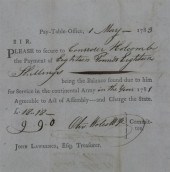 Pay-Table Office, 1 May 1783
SIR,
PLEASE to secure to
the Payment of Eighteen Pounds Eighteen
Shillings
being the Balance found due to him
for Service in the continental Army in the Year 1781
Agreeable to Act of Assembly and Charge the State
£ 18-18-
9 9 0
JOHN LAWRENCE, Esq; Treasurer.